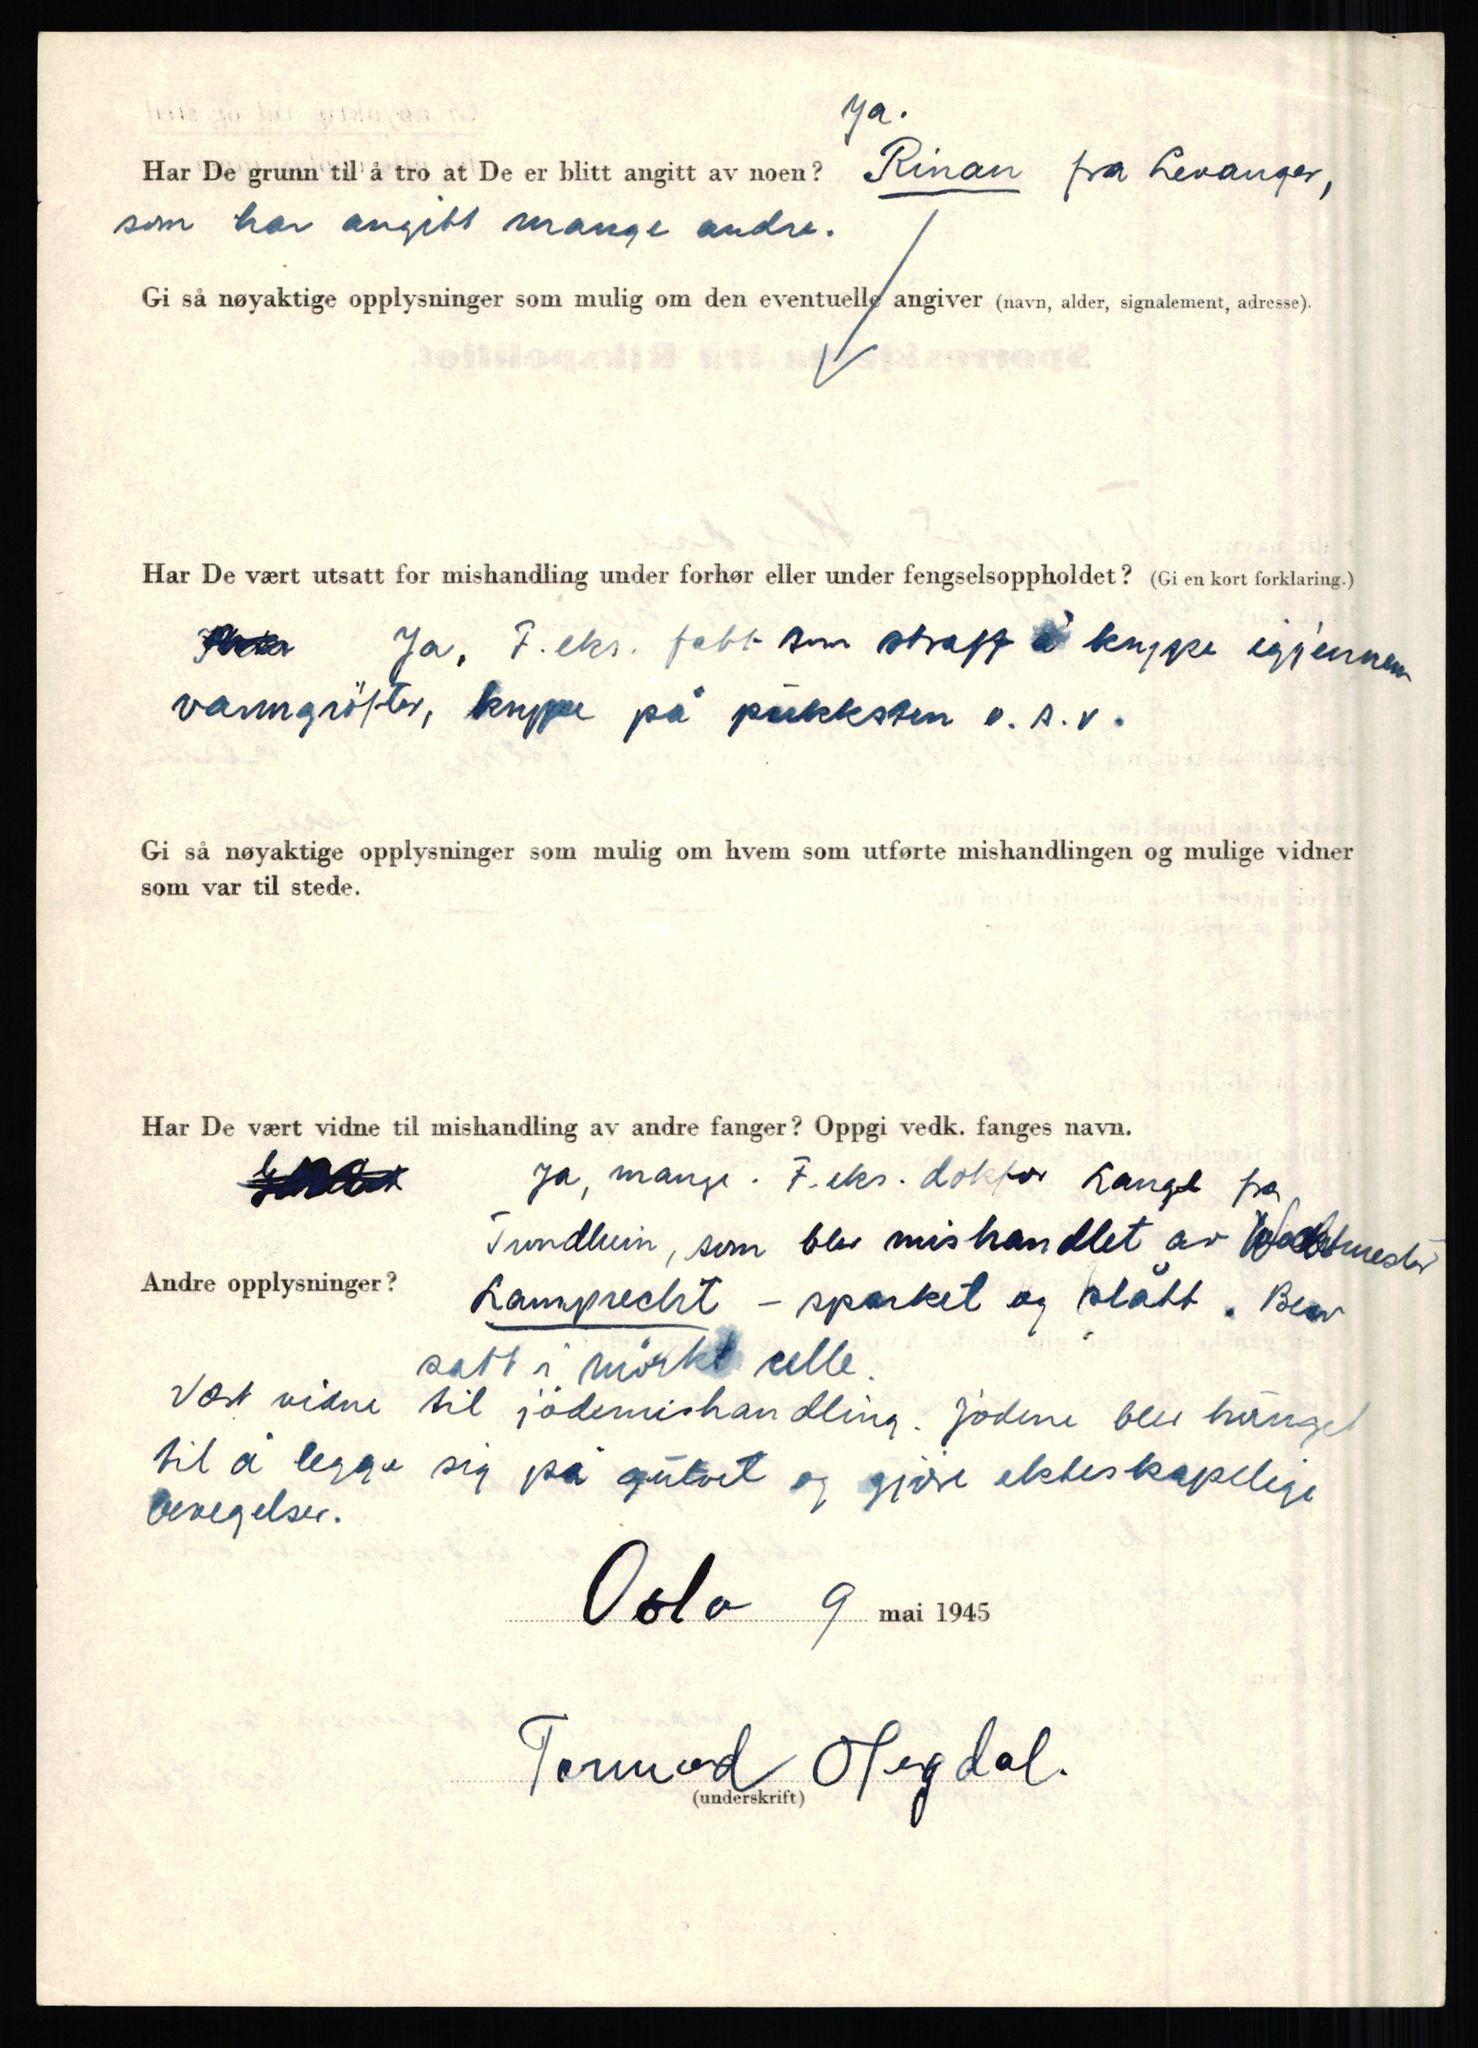 Ja.
Har De grunn til å tro at De er blitt angitt av noen? Rinan fra Levanger,
som har angitt mange andre.
Gi så nøyaktige opplysninger som mulig om den eventuelle angiver (navn, alder, signalement, adresse).
Har De vært utsatt for mishandling under forhør eller under fengselsoppholdet? (Gi en kort forklaring.)
Ja, F. eks. fått som straff å kryppe igjennem
vanngröfter, kryppe på pukksten o. s. v.
Gi så nøyaktige opplysninger som mulig om hvem som utførte mishandlingen og mulige vidner
som var til stede.
Har De vært vidne til mishandling av andre fanger? Oppgi vedk. fanges navn.
Ja, mange. F. eks. doktor Lange fra
Trondheim, som blev mishandlet av Wachtmester
Andre opplysninger? Lamprecht – sparket og slått. Blev
satt i mörk celle.
Vært vidne til jödemishandling. Jödene blev tvunget
til å legge sig på gulvet og gjöre ekteskapelige
bevegelser.
Oslo 9 mai 1945
Tormod Hegdal.
(underskrift)